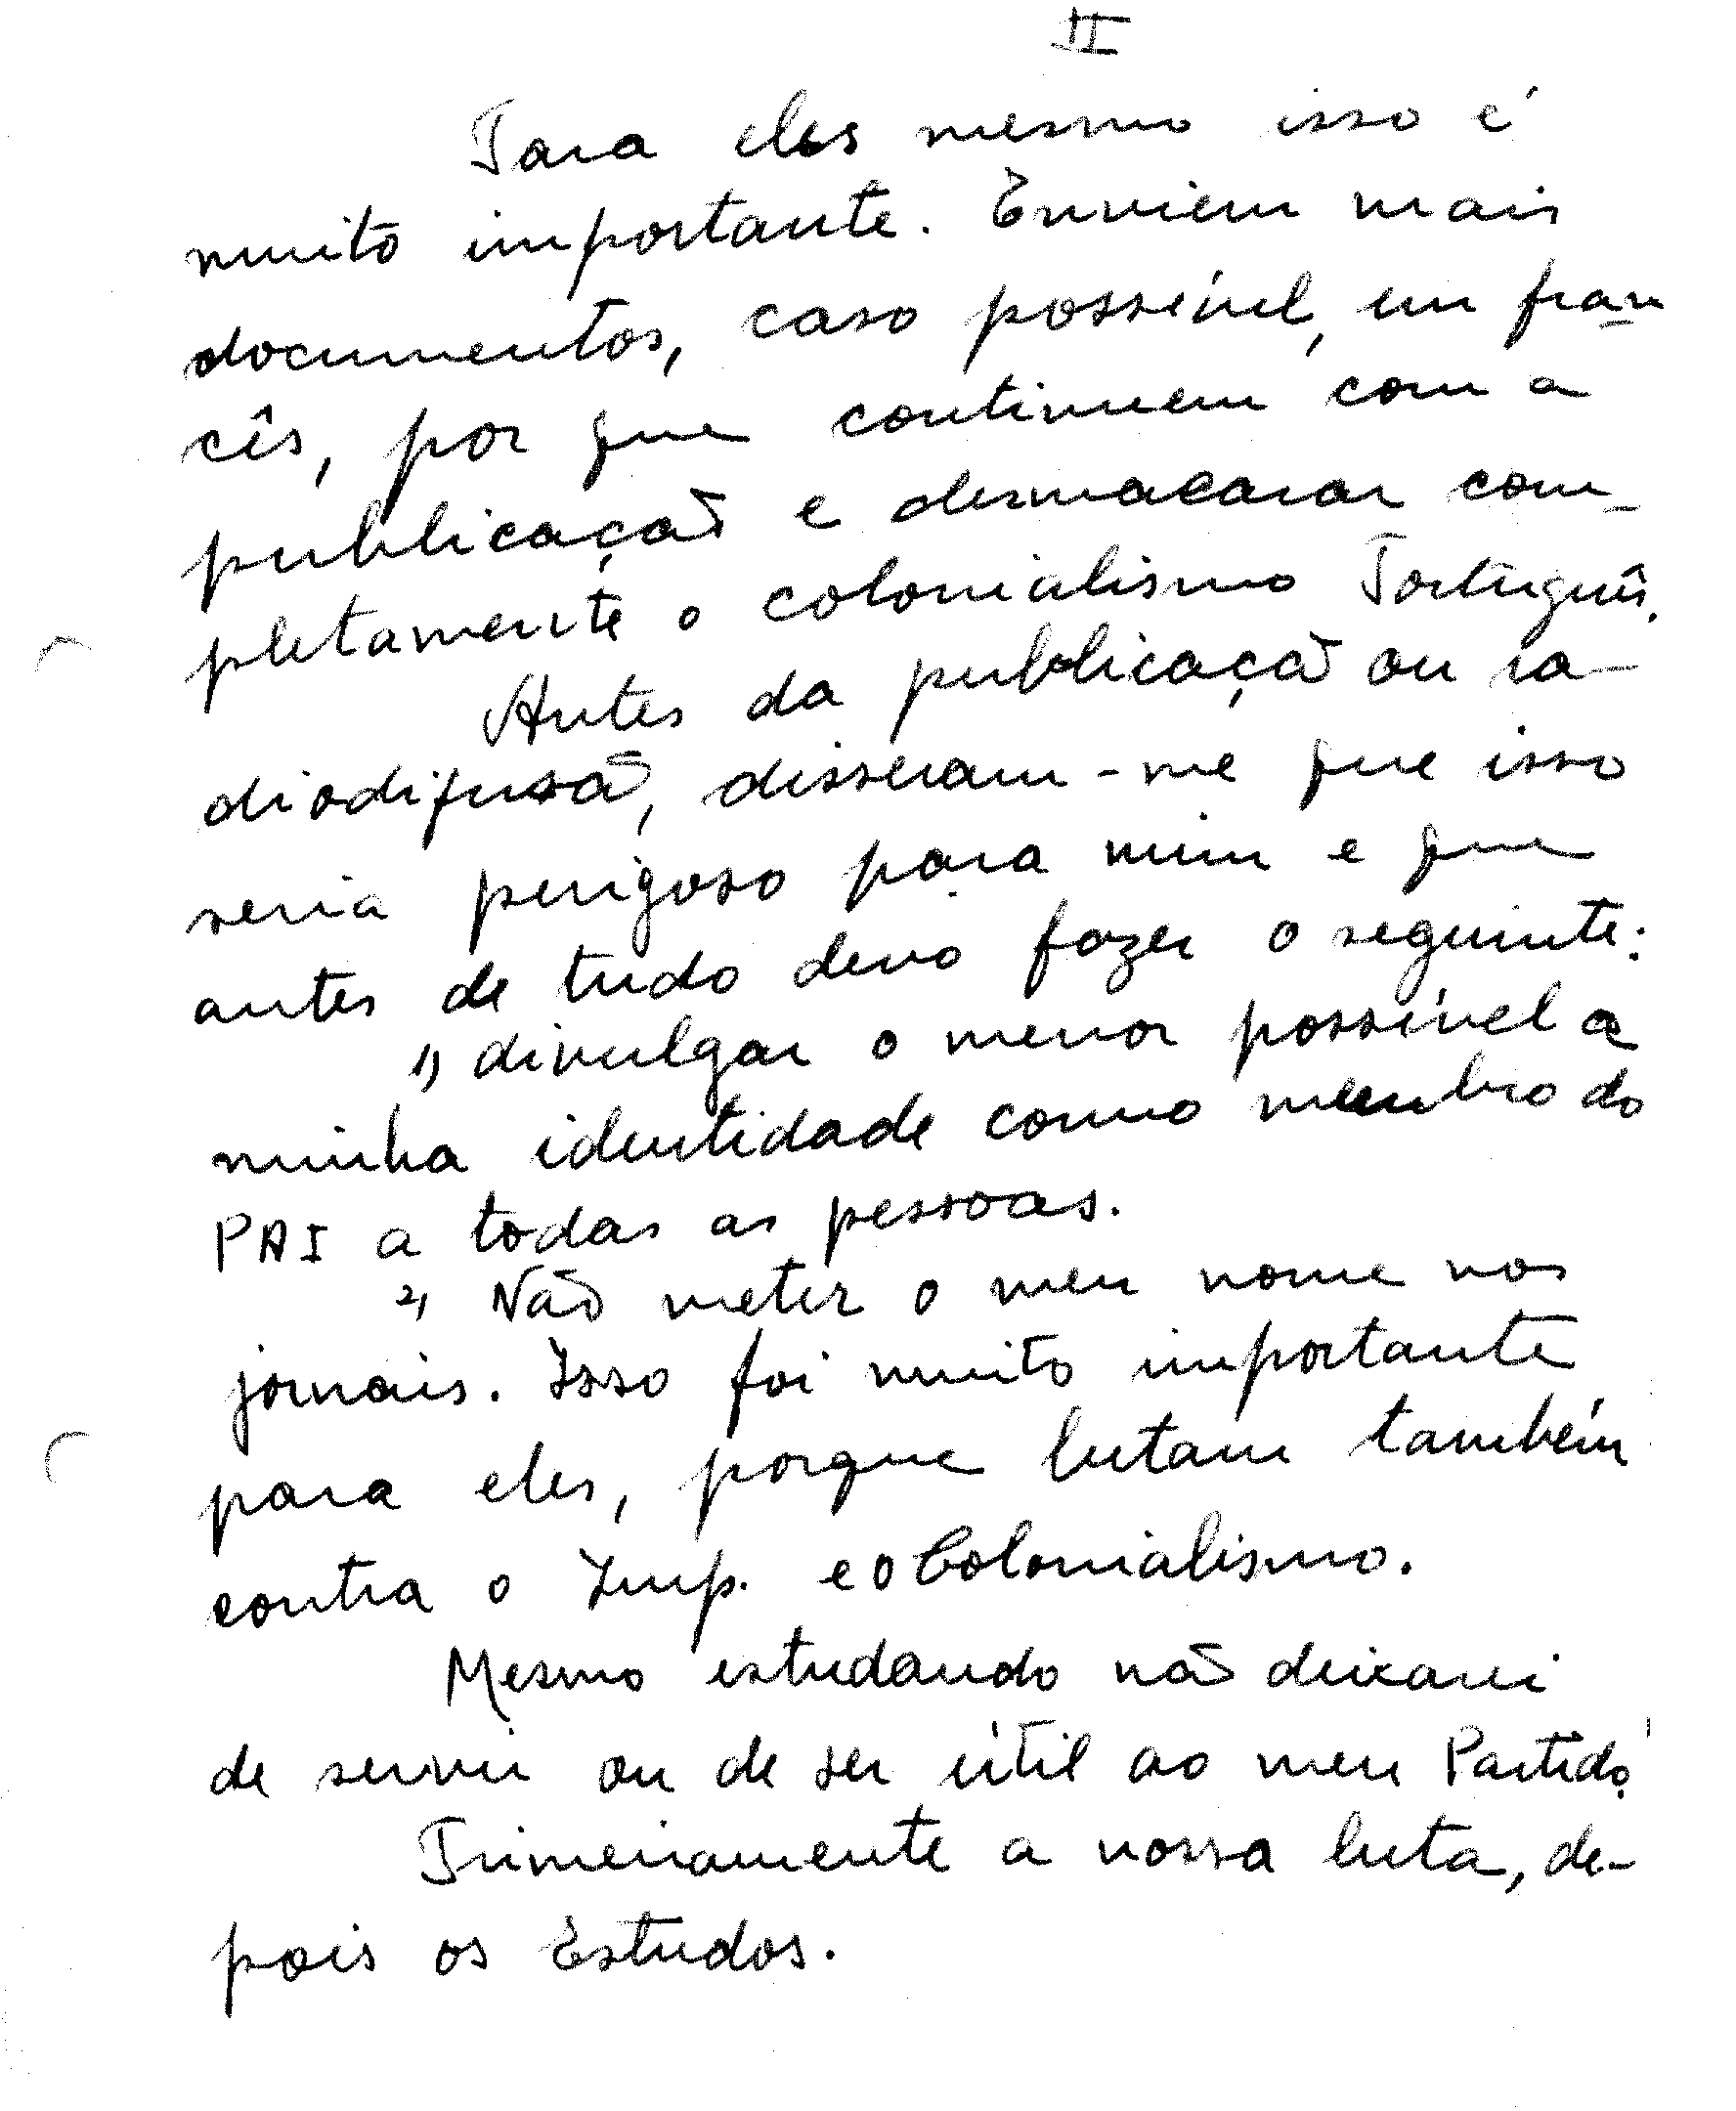 II
Para eles mesmo isso é
muito importante. Enviem mais
documentos, caso possível, em fran
cês, por que continuem com a
publicação e desmacarar com-
pletamente o colonialismo Português.
Antes da publicação ou ra-
diodifusão, disseram-me que isso
seria perigoso para mim e que
antes de tudo devo fazer o seguinte:
1) divulgar o menor possível a
minha identidade como membro do
PAI a todas as pessoas.
2) Não meter o meu nome nos
jornais. Isso foi muito importante
para eles, porque lutam também
contra o Imp. e o Colonialismo.
Mesmo estudando não deixarei
de servir ou de ser útil ao meu Partido.
Primeiramente a nossa luta, de-
pois os Estudos.